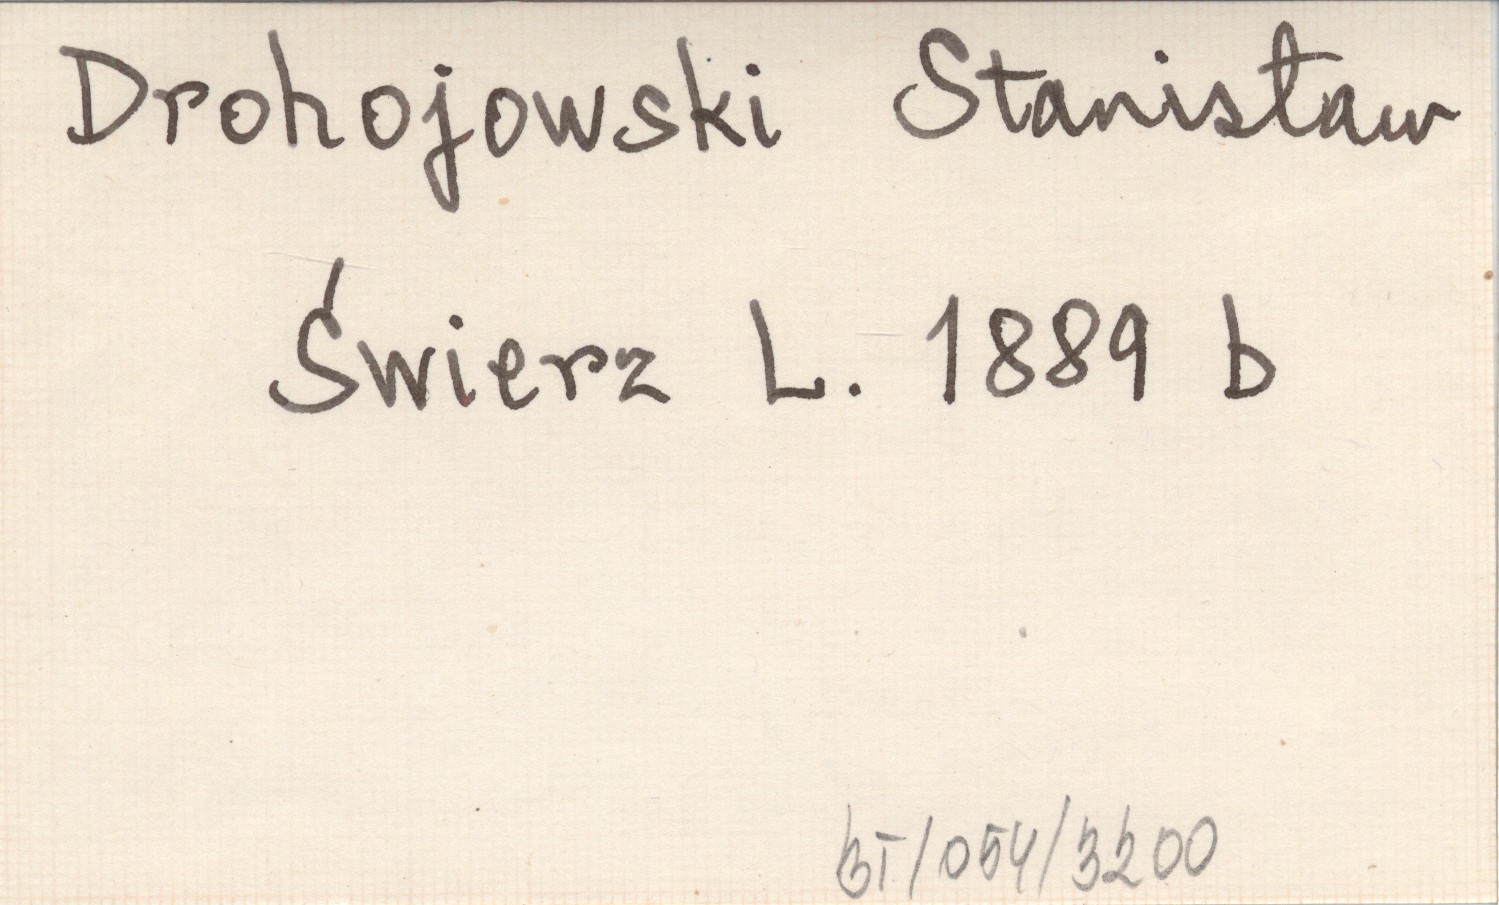 Drohojowski Stanisław
Świerz L. 1889 b
BT/054/3200